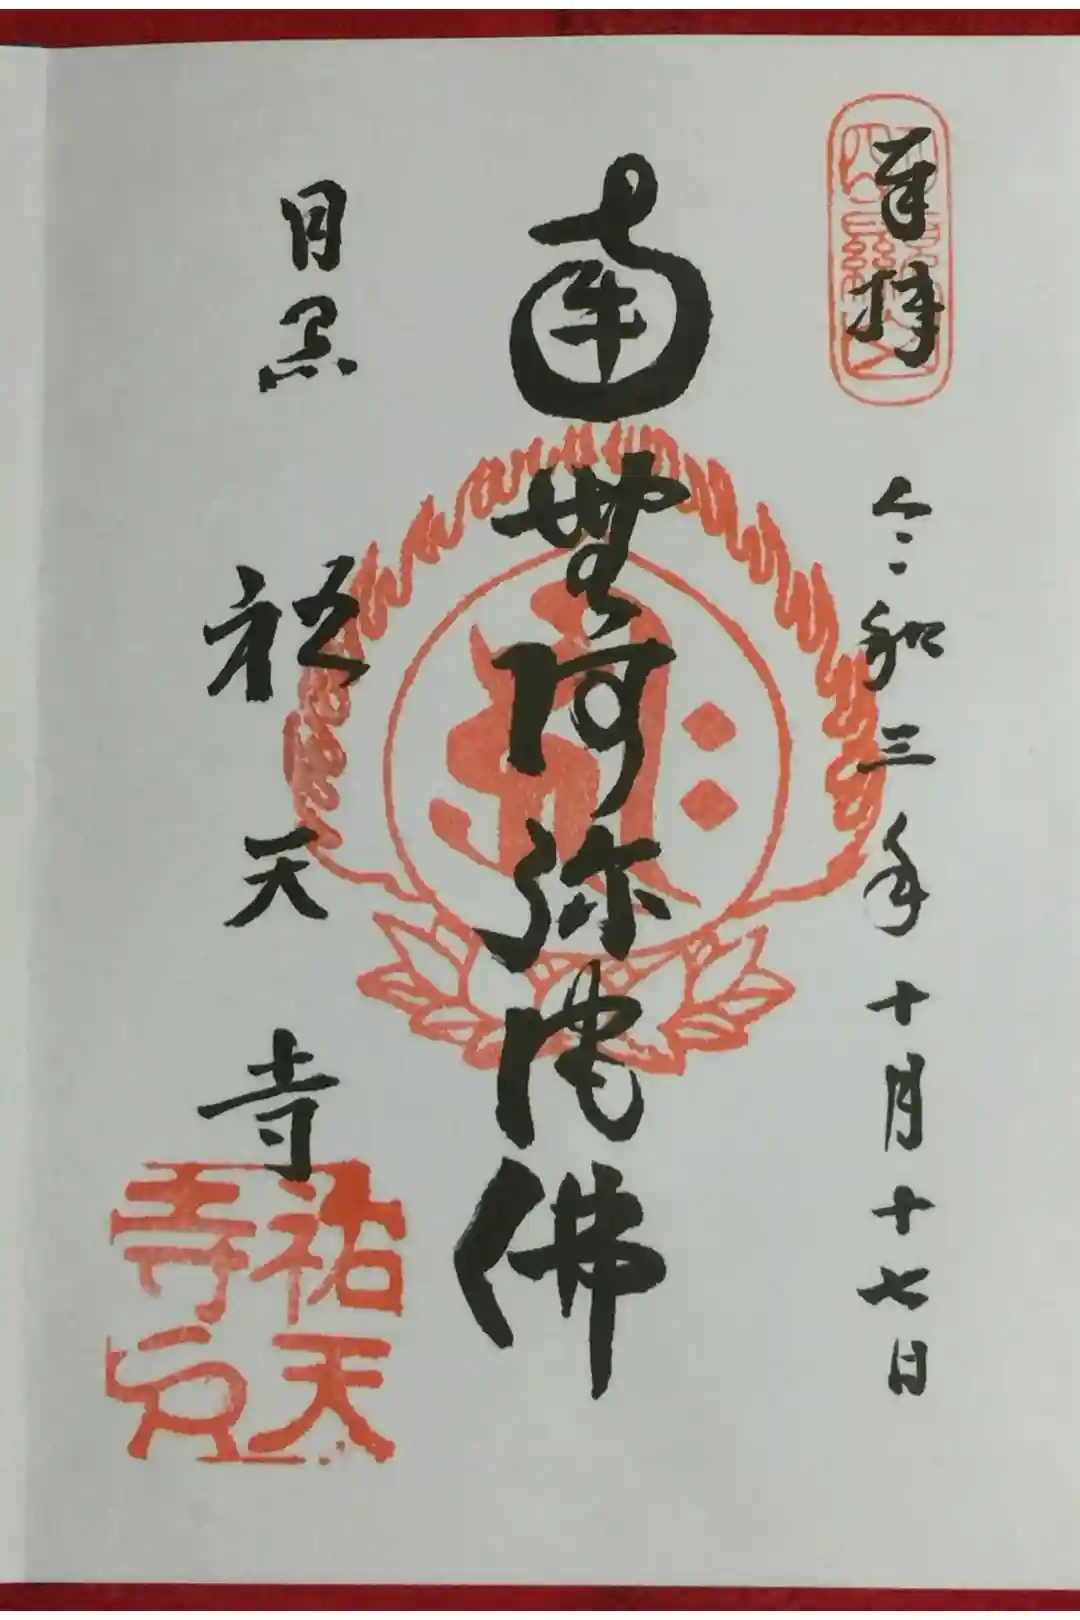 奉拝
令和三年十月十七日
南無阿弥陀佛
目黒 祐天寺
祐天寺印